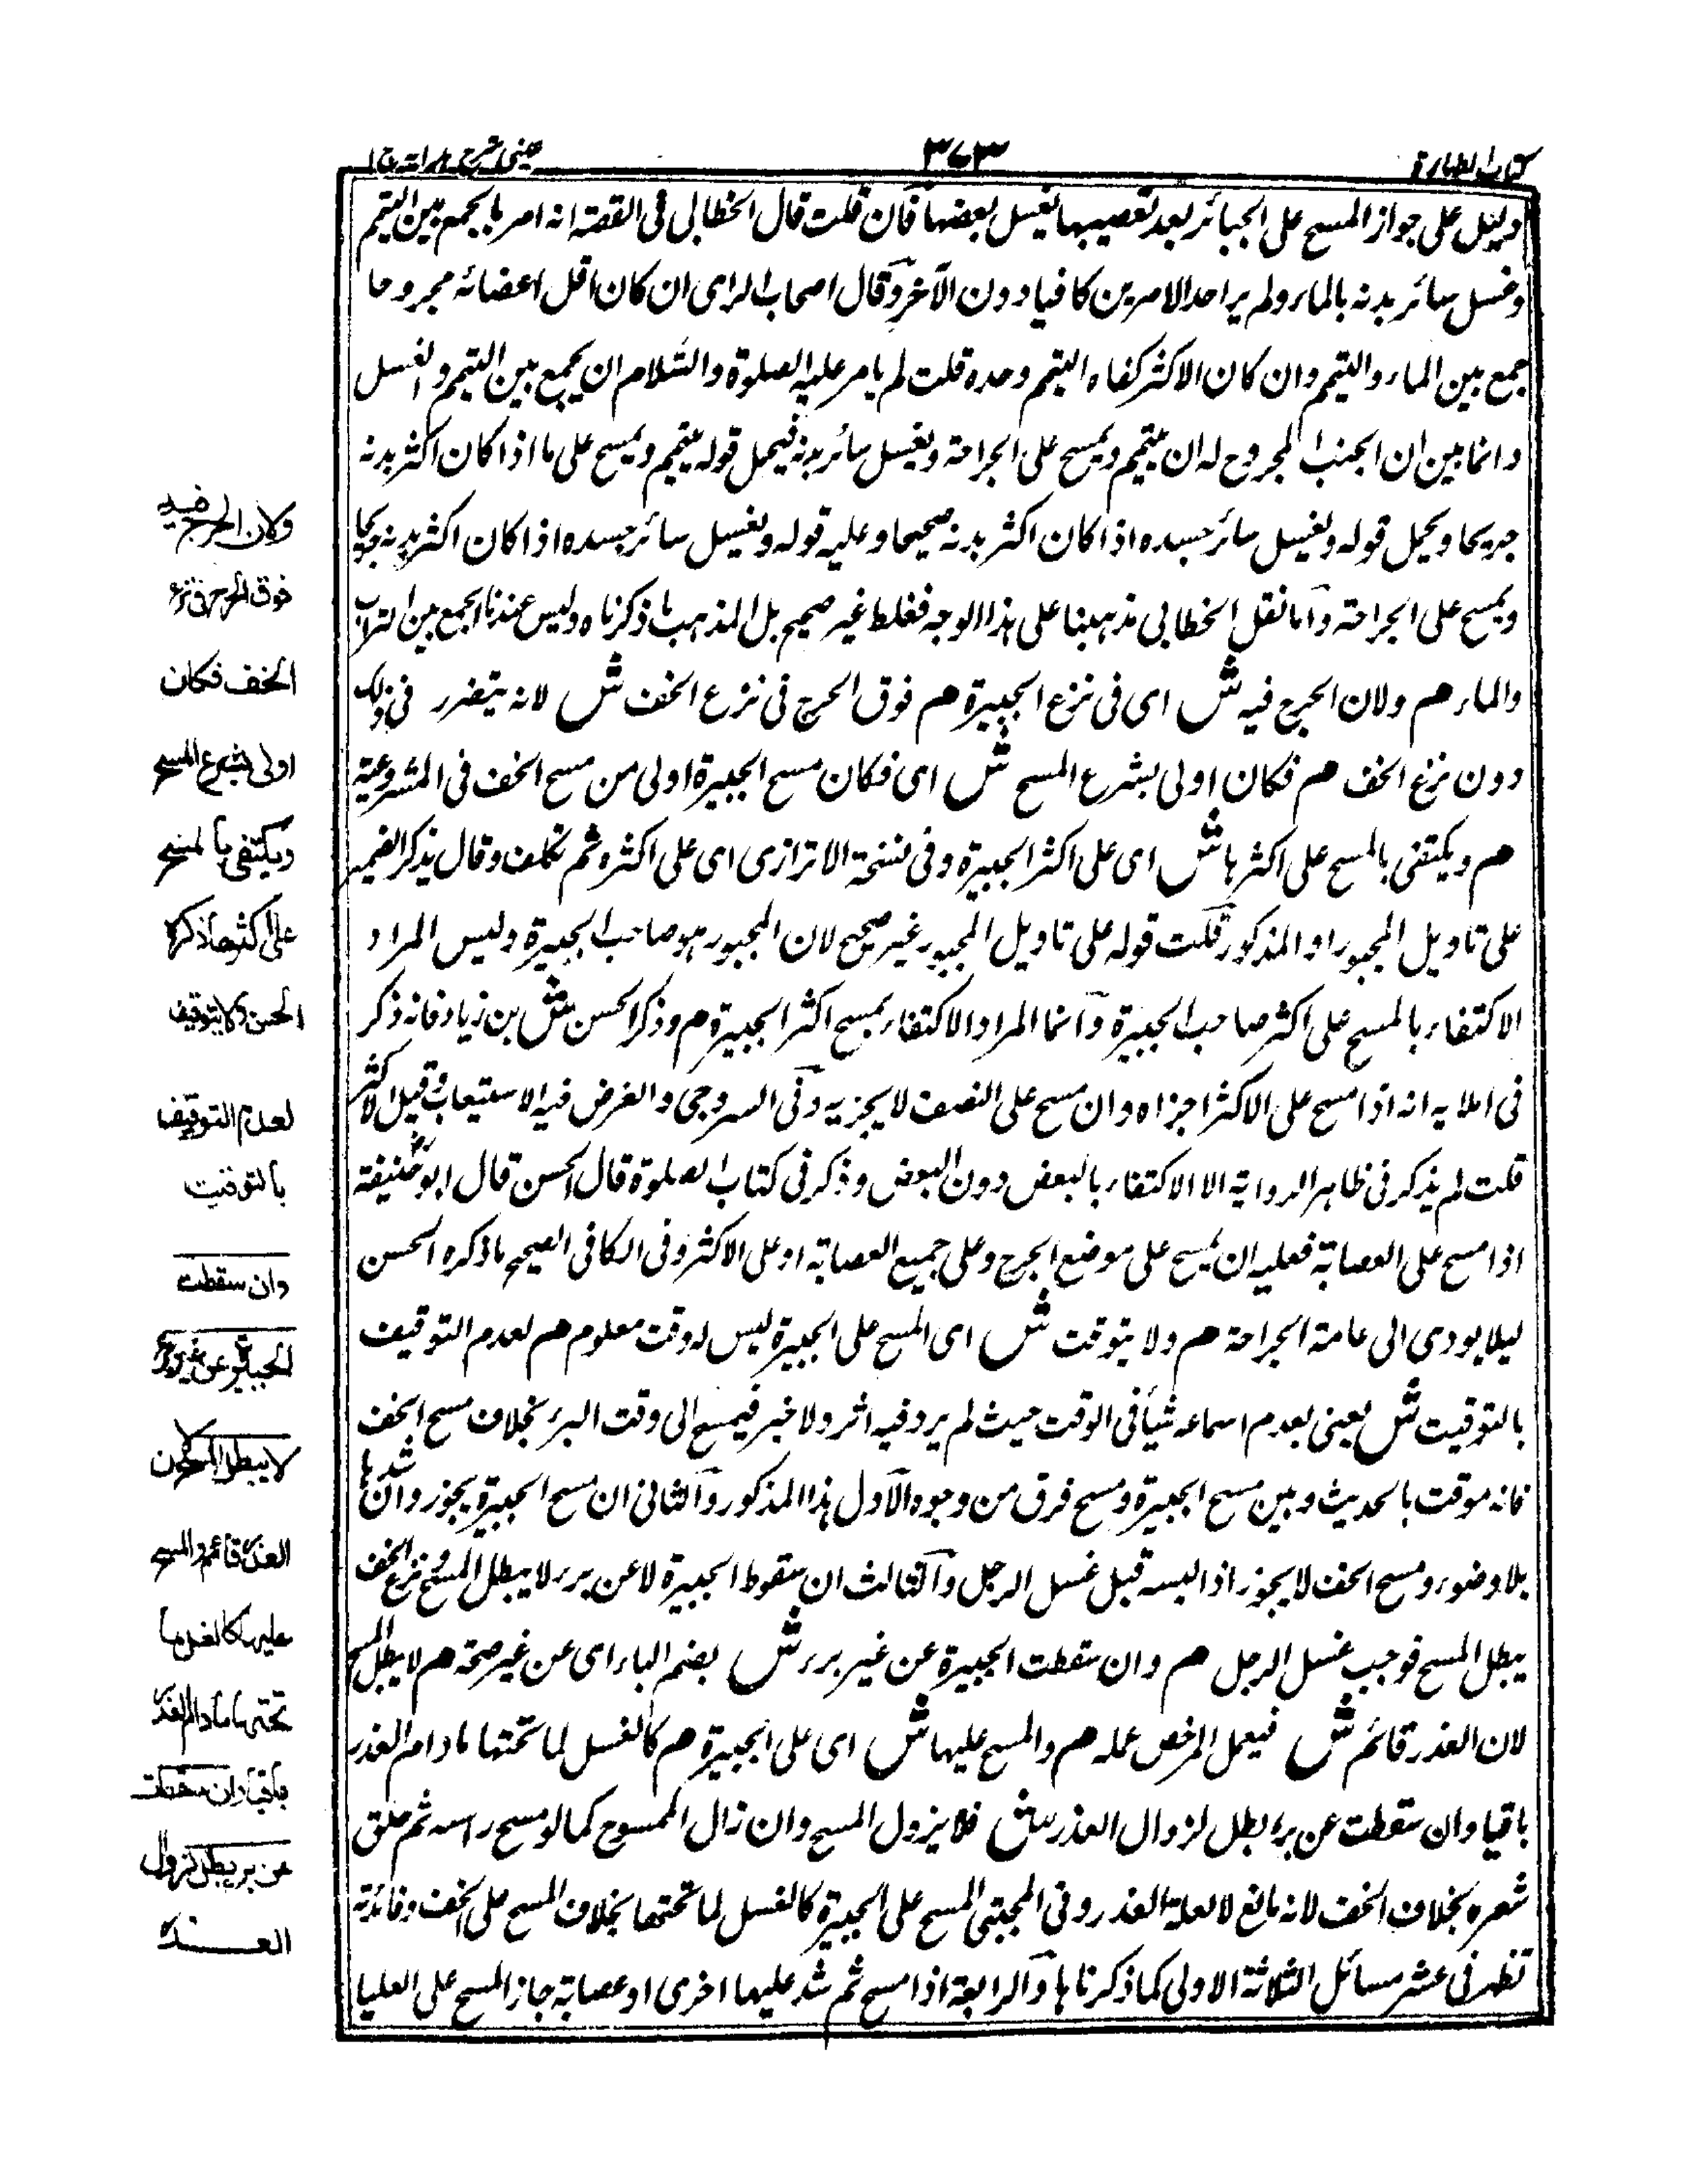 كتاب الطهارة
٣٧٣
عينى شرح هداية ج ا
دليل على جواز المسح على الجبائر بعد تعصيبها بغسل بعضها فان قلت قال الخطابى فى القصة انه امر بالجمع بين التيمم
وغسل سائر بدنه بالماء ولم ير احد الامرين كافيا دون الآخر وقال اصحاب الراى ان كان اقل اعضائه مجروحا
جمع بين الماء والتيمم وان كان الاكثر كفاه التيمم وحده قلت لم يامر عليه الصلوة والسلام ان يجمع بين التيمم والغسل
وانما بين ان الجنب المجروح له ان يتيمم ويمسح على الجراحة ويغسل سائر بدنه فيحمل قوله يتيمم ويمسح على ما اذا كان اكثر بدنه
جريحا ويحمل قوله ويغسل سائر جسده اذا كان اكثر بدنه صحيحا وعليه قوله ويغسل سائر جسده اذا كان اكثر بدنه جريحا
ويمسح على الجراحة وأما نقل الخطابى مذهبنا على هذا الوجه فغلط غير صحيح بل المذهب ما ذكرناه وليس عندنا الجمع بين التراب
والماء هم ولان الحرج فيه ش اى فى نزع الجبيرة هم فوق الحرج فى نزع الخف ش لانه يتضرر فى ذلك
دون نزع الخف هم فكان اولى بشرع المسح ش اى فكان مسح الجبيرة اولى من مسح الخف فى المشروعية
هم ويكتفى بالمسح على اكثرها ش اى على اكثر الجبيرة وفى نسخة الاترازى اى على اكثره ثم تكلف وقال يذكر الضمير
على تاويل المجبور او المذكور قلت قوله على تاويل المجبور غير صحيح لان المجبور هو صاحب الجبيرة وليس المراد
الاكتفاء بالمسح على اكثر صاحب الجبيرة وانما المراد الاكتفاء بمسح اكثر الجبيرة هم وذكر الحسن ش بن زياد فانه ذكر
فى املايه انه اذا مسح على الاكثر اجزاه وان مسح على النصف لا يجزيه وفى السروجى والغرض فيه الاستيعاب وقيل الاكثر
قلت لم يذكر فى ظاهر الرواية الا الاكتفاء بالبعض دون البعض وذكر فى كتاب الصلوة قال الحسن قال ابو حنيفة
اذا مسح على العصابة فعليه ان يمسح على موضع الجرح وعلى جميع العصابة او على الاكثر وفى الكافى الصحيح ما ذكره الحسن
ليلا يودى الى عامة الجراحة هم ولا يتوقت ش اى المسح على الجبيرة ليس له وقت معلوم هم لعدم التوقيف
بالتوقيت ش يعنى بعدم اسماعه شيأ فى الوقت حيث لم يرد فيه اثر ولا خبر فيمسح الى وقت البرء بخلاف مسح الخف
فانه موقت بالحديث وبين مسح الجبيرة ومسح فرق من وجوه الآول هذا المذكور وآلثانى ان مسح الجبيرة يجوز وان شدها
بلا وضوء ومسح الخف لا يجوز اذا لبسه قبل غسل الرجل وآلثالث ان سقوط الجبيرة لا عن برء لا يبطل المسح ونزع الخف
يبطل المسح فوجب غسل الرجل هم وان سقطت الجبيرة عن غير برء ش بضم الباء اى عن غير صحة هم لا يبطل المسح
لان العذر قائم ش فيعمل المرخص عمله هم والمسح عليها ش اى على الجبيرة هم كالغسل لما تحتها ما دام العذر
باقيا وان سقطت عن برء بطل لزوال العذر ش فلا يزول المسح وان زال الممسوح كما لو مسح راسه ثم حلق
شعره بخلاف الخف لانه مانع لا لعلة العذر وفى المجتبى المسح على الجبيرة كالغسل لما تحتها بخلاف المسح على الخف وفائدته
تظهر فى عشر مسائل الثلاثة الاولى كما ذكرناها وآلرابعة اذا مسح ثم شد عليها اخرى او عصابة جاز المسح على العليا
ولان الحرج فيه
فوق الحرج فى نزع
الخف فكان
اولى بشرع المسح
ويكتفى بالمسح
على اكثرها ذكره
الحسن ولا يتوقف
لعدم التوقيف
بالتوقيت
وان سقطت
الجبيرة عن غير برء
لا يبطل المسح لان
العذر قائم والمسح
عليها كالغسل لما
تحتها ما دام العذر
باقيا وان سقطت
عن برء بطل لزوال
العذر